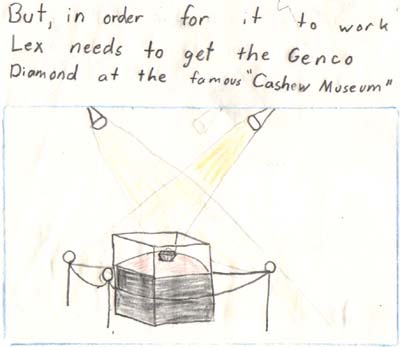 But, in order for it to work
Lex needs to get the Genco
Diamond at the famous "Cashew Museum"